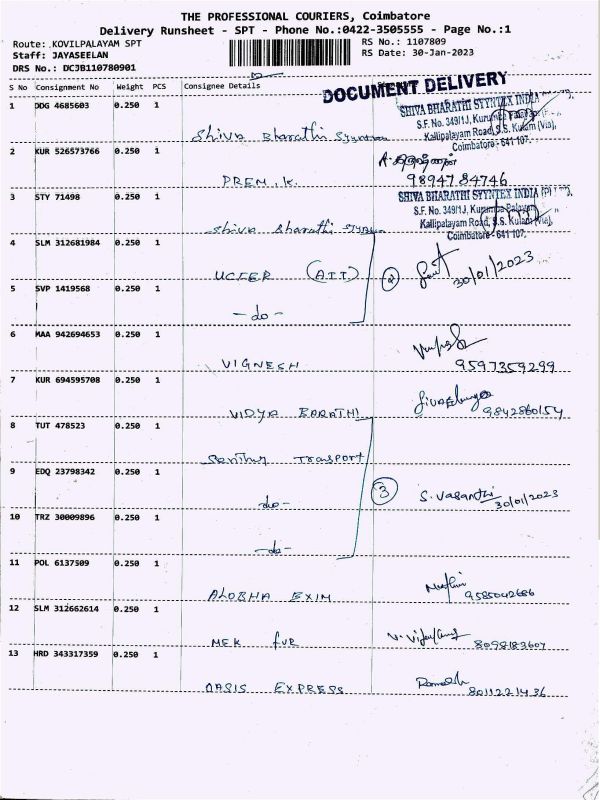 THE PROFESSIONAL COURIERS, Coimbatore
Delivery Runsheet - SPT - Phone No.:0422-3505555 - Page No.:1
Route: KOVILPALAYAM SPT RS No.: 1107809
Staff: JAYASEELAN RS Date: 30-Jan-2023
DRS No.: DCJB110780901
DOCUMENT DELIVERY
S No Consignment No Weight PCS Consignee Details
1 DDG 4685603 0.250 1
SHIVA BHARATHI SYYNTEX INDIA
S.F. No. 349/1J, Kurumba Palayam
Kallipalayam Road, S.S. Kulam (Via),
Coimbatore - 641 107.
Shiva Bharathi
2 KUR 526573766 0.250 1
PREM .K. 98947 84746
3 STY 71498 0.250 1
SHIVA BHARATHI SYYNTEX INDIA (P)
S.F. No. 349/1J, Kurumba Palayam
Kallipalayam Road, S.S. Kulam (Via),
Coimbatore - 641 107.
Shiva Bharathi
4 SLM 312681984 0.250 1
(2) 30/01/2023
5 SVP 1419568 0.250 1
- do -
6 MAA 942694653 0.250 1
VIGNESH 9597359299
7 KUR 694595708 0.250 1
VIDYA BARATHI 9842860154
8 TUT 478523 0.250 1
Senthur Transport
9 EDQ 23798342 0.250 1
- do - (3) S. Vasanthi 30/01/2023
10 TRZ 30009896 0.250 1
- do -
11 POL 6137509 0.250 1
ALOBHA EXIM 9585042686
12 SLM 312662614 0.250 1
MEK fur 8098182607
13 HRD 343317359 0.250 1
OASIS EXPRESS Ramesh 8011221436